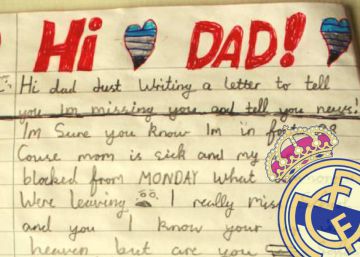 Hi DAD!
Hi dad Just Writing a letter to tell
you Im missing you and tell you news.
I'm Sure you know Im in
Couse mom is sick and my
blocked from MONDAY What
Were leaving I really
and you I know your
heaven but are you